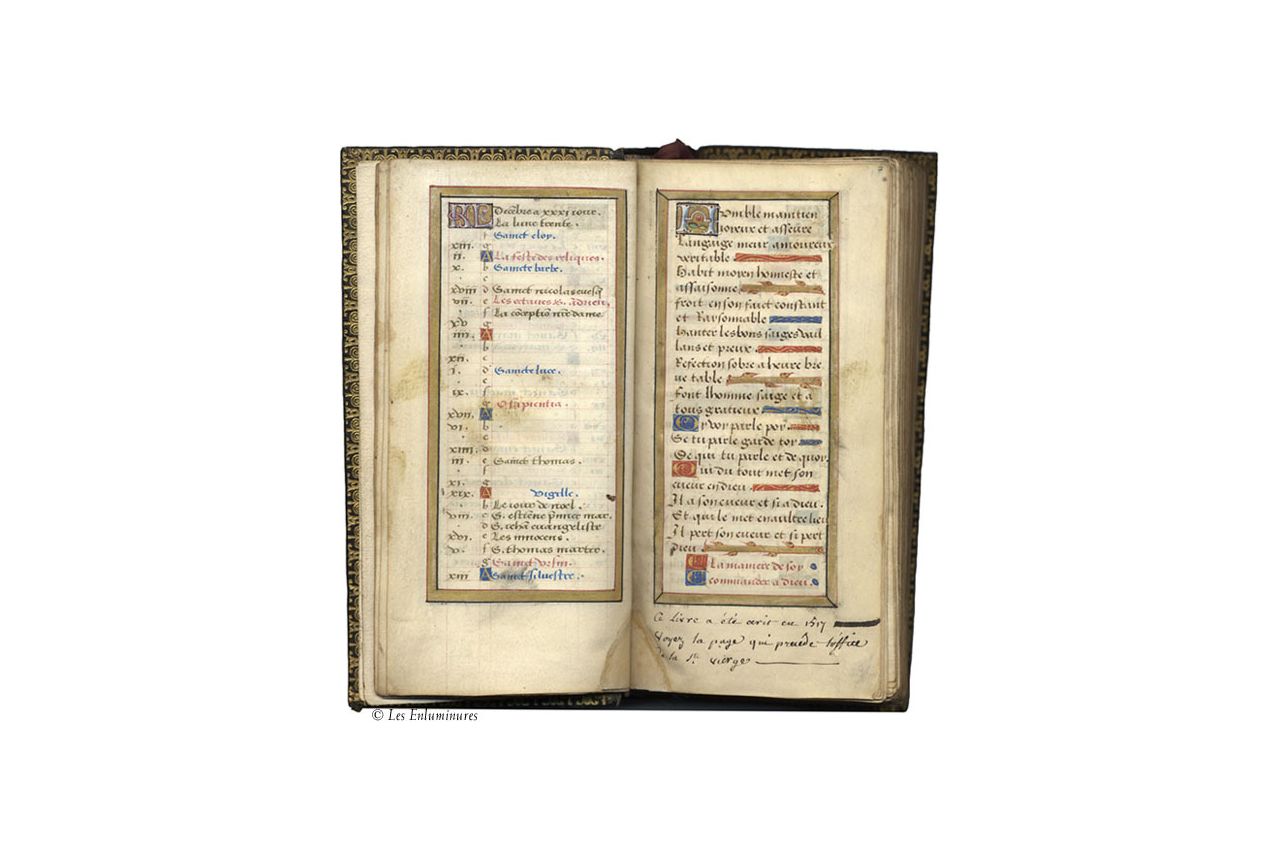 KL Decēbre a xxxi iour.
La lune trente.
f Sainct eloy.
xiii. g
ii. A La feste des reliques.
x. b Saincte barbe.
. c
xviii d Sainct nicolas evesq
vii. e Les octaves S. Adrien.
. f La cōceptiō nr̄e dame
xv g
iiii. A
. b
xii. c
i. d Saincte luce.
. e
ix. f
. g O sapientia.
xvii. A
vi. b
. c
xiiii. d
iii. e Sainct thomas.
. f
xi. g
xix. A Vigille.
. b Le iour de noel.
viii. c S. estiēne p̄mier mar.
. d S. iehā euangeliste
xvi. e Les innocens.
v. f S. thomas martre.
. g Sainct Ursin.
xiii A Sainct silvestre.
Humble maintien
ioieux et asseure
Langaige meur amoureux
veritable
Habit moyen honneste et
assaisonne
froit en son faict constant
et Raisonnable
Hanter les bons saiges vail
lans et preux.
Refection sobre a heure bre
ve table
font lhomme saige et a
tous gratieux
Oy voy parle poy.
Se tu parle garde toy
De qui tu parle et de quoy.
Qui du tout met son
cueur en dieu.
Il a son cueur et si a dieu.
Et qui le met en aultre lieu
Il pert son cueur et si pert
dieu.
La maniere de soy
commander a dieu.
Ce Livre a été écrit en 1517
Voyez la page qui precède l'office
de la Ste vierge
© Les Enluminures